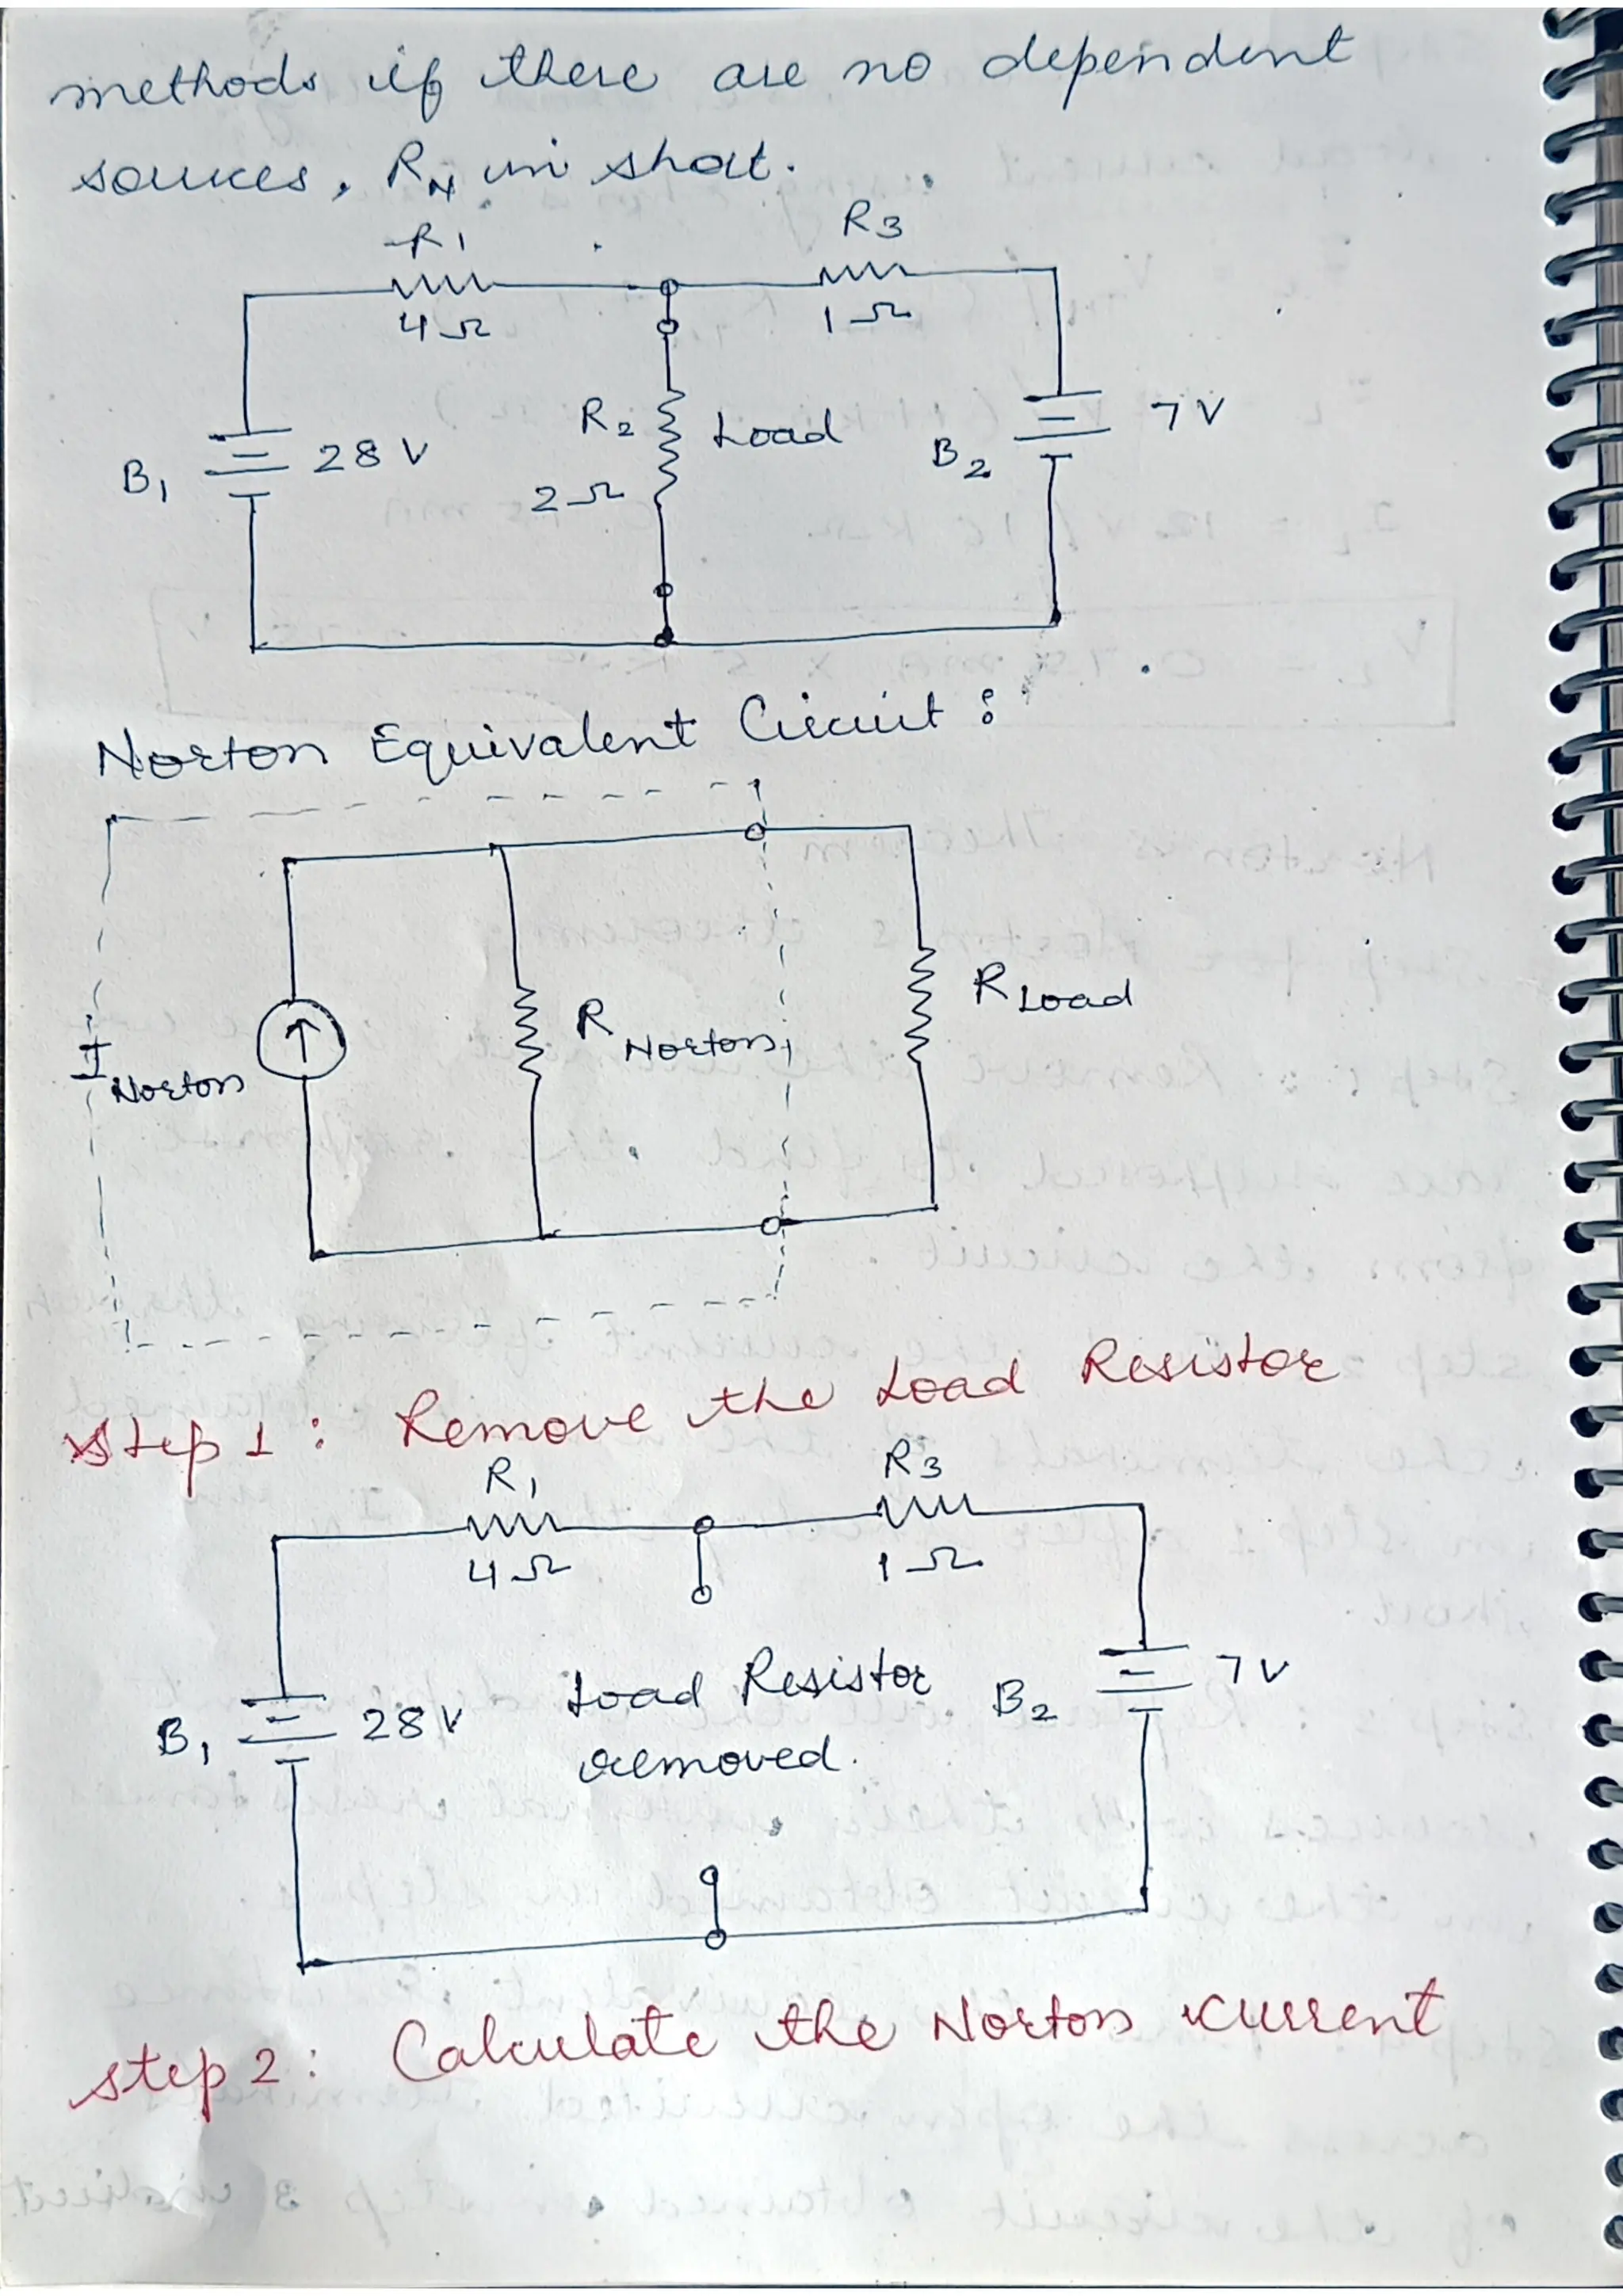 methods if there are no dependent
sources, R_N in short.
R1
4Ω
R3
1Ω
B1
28 V
R2
2Ω
Load
B2
7 V
Norton Equivalent Circuit:
I Norton
R Norton
R Load
Step 1: Remove the Load Resistor
R1
4Ω
R3
1Ω
B1
28 V
Load Resistor
removed.
B2
7 V
Step 2: Calculate the Norton current